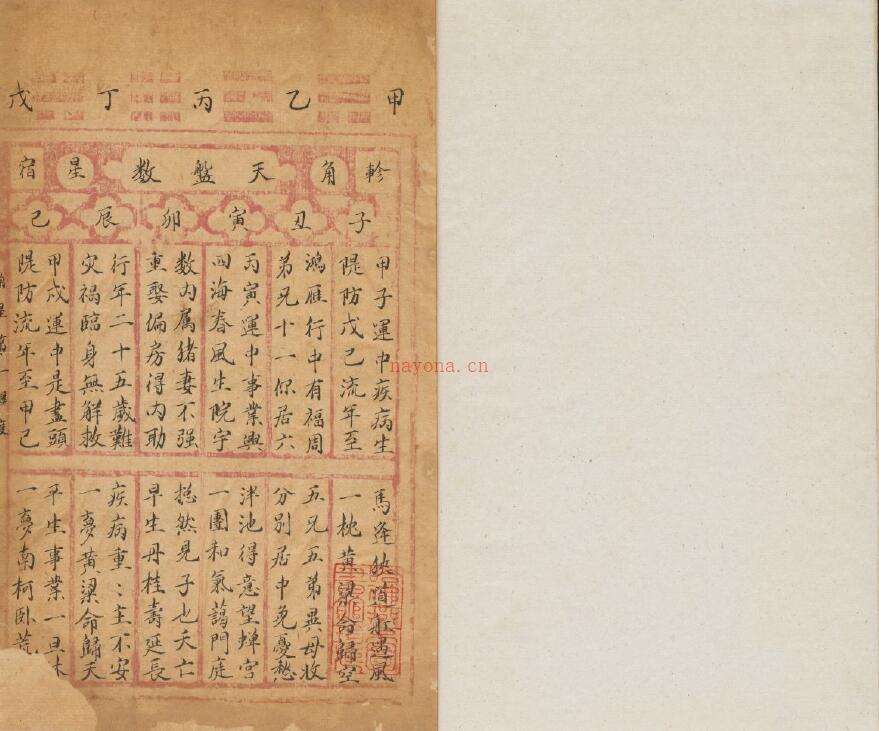 甲乙丙丁戊
軫角天盤数星宿
子丑寅卯辰巳
甲子運中疾病生
隄防戊己流年至
鴻雁行中有福周
弟兄十一你居六
丙寅運中事業興
四海春風生院宇
数内属猪妻不强
重娶偏房得内助
行年二十五歲難
灾禍臨身無解救
甲戌運中是盡頭
隄防流年至甲己
馬逢狹道舡遇風
一枕黄粱命歸空
五兄五弟異母收
分别居中免憂愁
泮池得意望蟬宮
一團和氣藹門庭
揔然見子也夭亡
早生丹桂壽延長
疾病重：主不安
一夢黄粱命歸天
平生事業一旦休
一夢南柯卧荒
nayona.cn